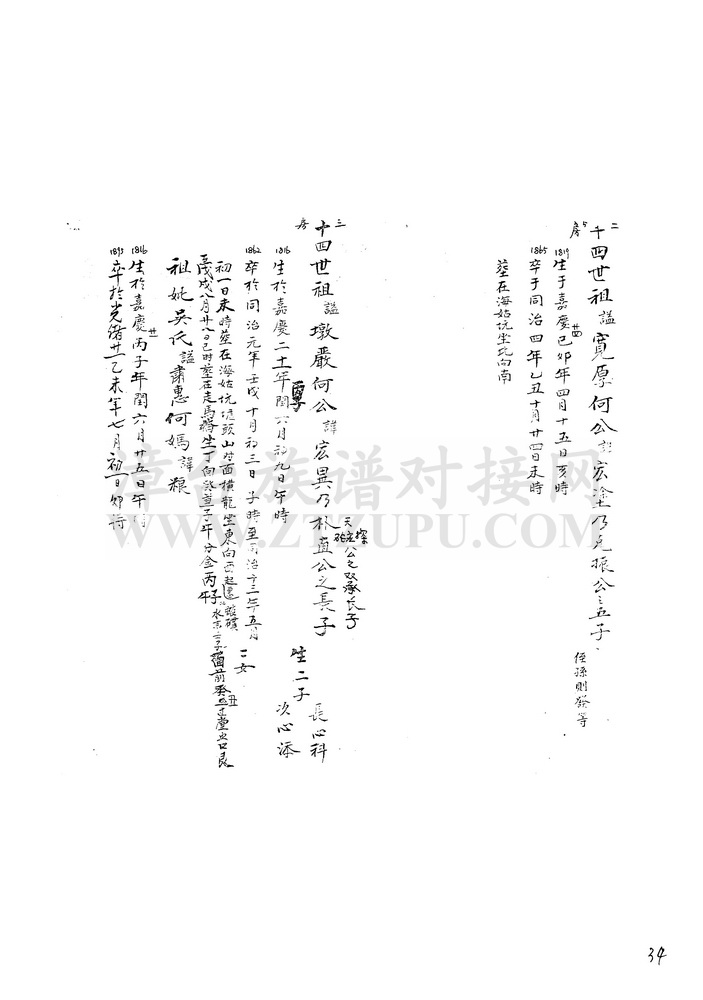 二房
十四世祖謚寬厚何公諱宏塗乃克振公之五子
侄孫則發等
1819 生于嘉慶廿四己卯年四月十五日亥時
1865 卒于同治四年乙丑十月廿四日未時
塟在海姑坑坐北向南
三房
十四世祖謚墩嚴何公諱宏異乃朴直公之長子
公之双承長子
生二子 長心科
次心添
二女
1816 生於嘉慶二十一年閏六月初九日午時
1862 卒於同治元年壬戌十月初三日子時至同治十三年五月
初一日未時塟在海姑坑坑頭山對面橫龍坐東向西
戊戌八月廿八日巳時塟在走馬 坐丁向癸 子午分金丙午
祖妣吳氏謚肅惠何媽諱粮
1816 生於嘉慶廿一丙子年閏六月廿五日午時
1895 卒於光緒廿一乙未年七月初一日卯時
漳州族谱对接网
WWW.ZZZUPU.COM
34